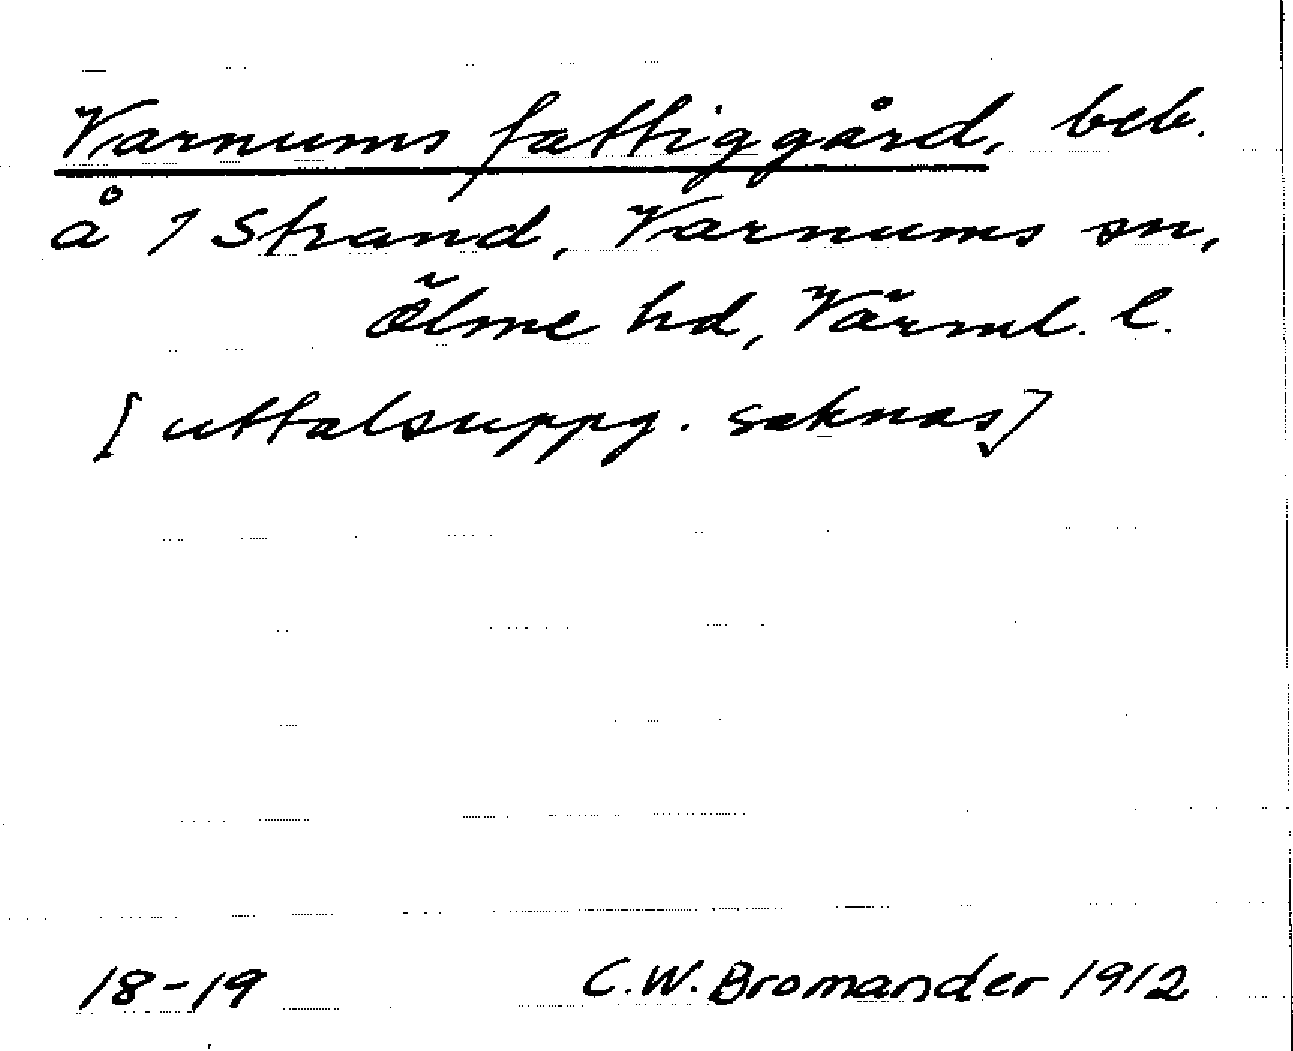 Varnums fattiggård, beb.
å 1 Strand, Varnums sn,
Ölme hd, Värml. l.
[uttalsuppg. saknas]
18-19 C.W. Bromander 1912